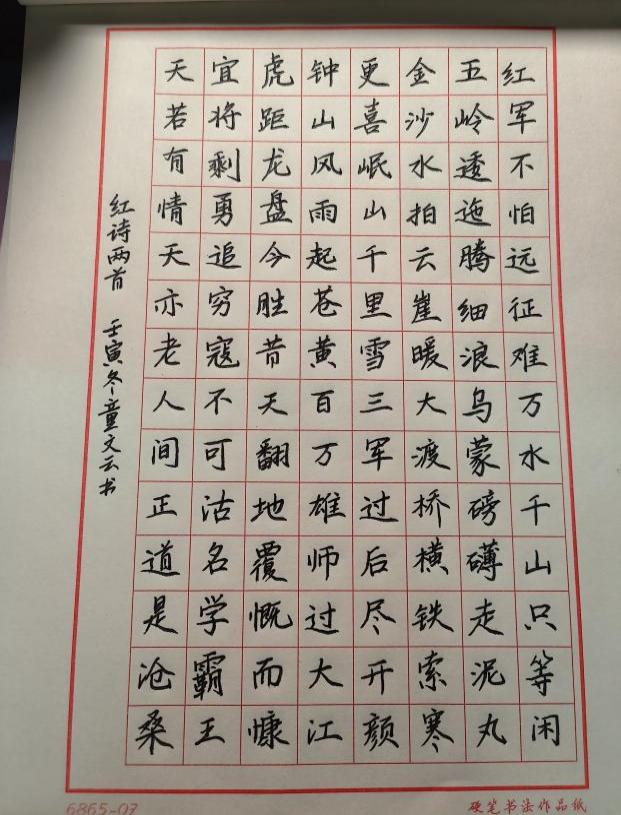 红军不怕远征难万水千山只等闲
五岭逶迤腾细浪乌蒙磅礴走泥丸
金沙水拍云崖暖大渡桥横铁索寒
更喜岷山千里雪三军过后尽开颜
钟山风雨起苍黄百万雄师过大江
虎距龙盘今胜昔天翻地覆慨而慷
宜将剩勇追穷寇不可沽名学霸王
天若有情天亦老人间正道是沧桑
红诗两首 壬寅冬童文云书
6865-07
硬笔书法作品纸